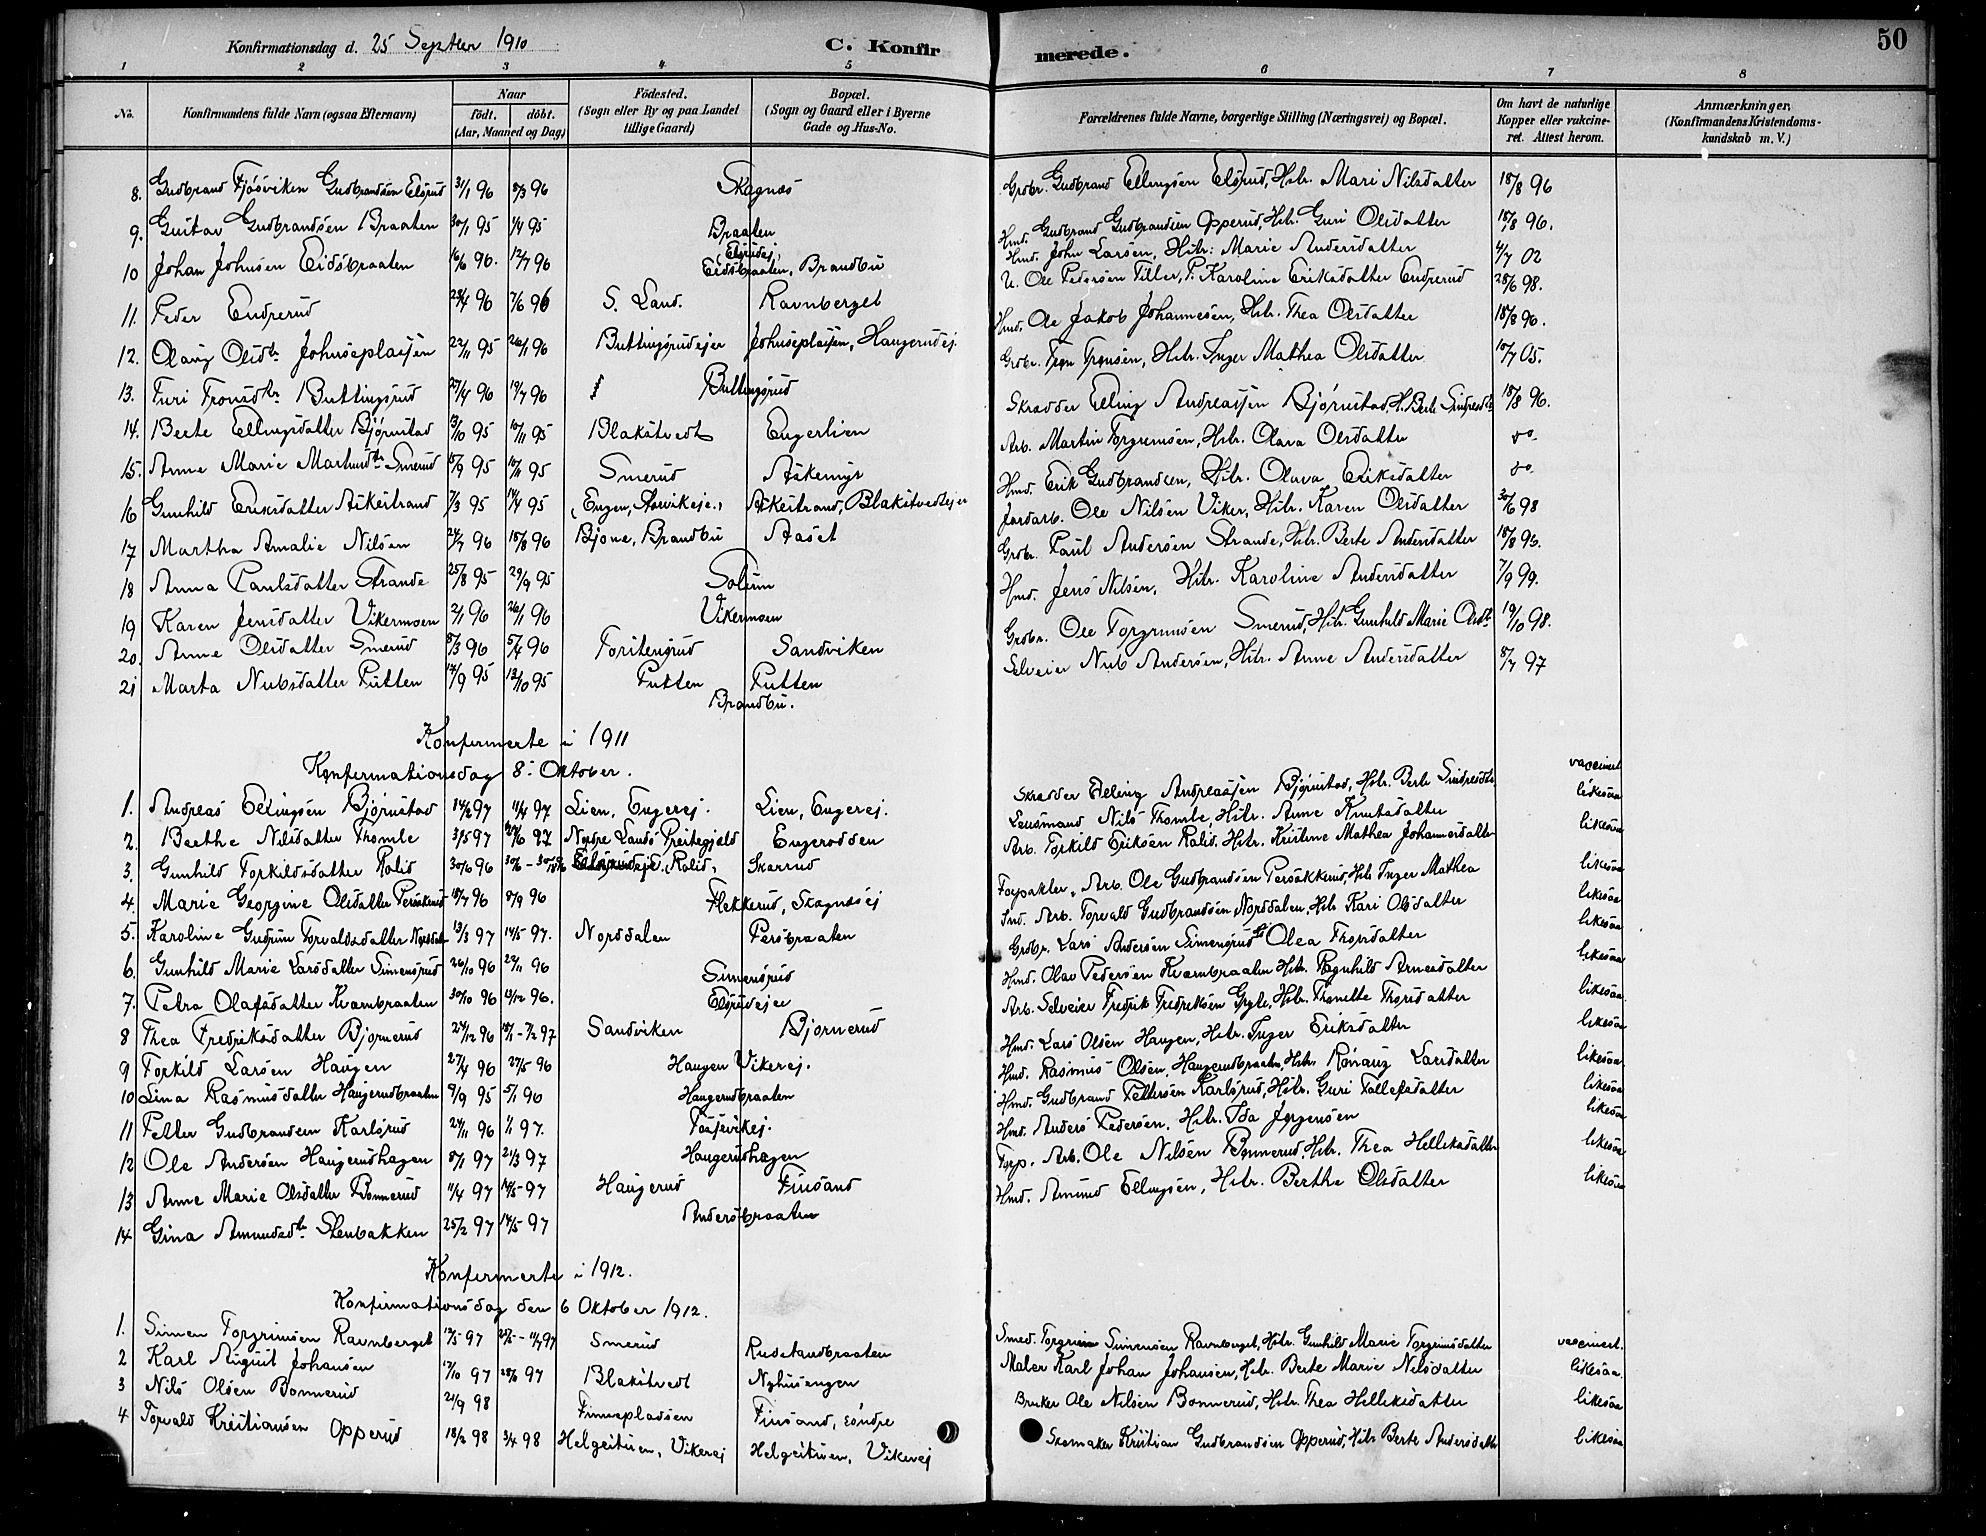 Konfirmationsdag d. 25 Septber 1910 C. Konfirmerede. 50
1 2 3 4 5 6 7 8
No. Konfirmandens fulde Navn (ogsaa Efternavn) Naar født. døbt. (Aar, Maaned og Dag) Fødested. (Sogn eller By og paa Landet tillige Gaard) Bopæl. (Sogn og Gaard eller i Byerne Gade og Hus-No. Forældrenes fulde Navne, borgerlige Stilling (Næringsvei) og Bopæl. Om havt de naturlige Kopper eller vakcineret. Attest herom. Anmærkninger, (Konfirmandens Kristendomskundskab m. V.)
8. Gudbrand Fjøsviken Gudbrandsen Elsrud 31/1 96 8/3 96 Skagnæs Grdbr. Gudbrand Ellingsen Elsrud, Hstr. Mari Nilsdatter 18/8 96
9. Gustav Gudbrandsen Braaten 30/1 95 1/4 95 Braaten (Elsrudej.) Hmd. Gudbrand Gudbrandsen Opperud, Hstr. Guri Olsdatter 18/8 96.
10 Johan Johnsen Eidsbraaten 16/6 96. 12/7 96 Eidsbraaten, Brandbu Hmd. John Larsen, Hstr: Marie Andersdatter 4/7 02
11. Peder Endrerud 29/4 96 7/6 96 S. Land. Ravnberget U. Ole Pedersen Tiller, P. Karoline Eriksdatter Endrerud 28/6 98.
12. Olaug Olsdtr Johnseplassen 22/11 95 26/1 96 Buttingsrudejer Johnseplassen, Haugerudej. Hmd. Ole Jakob Johannesen, Hstr. Thea Olsdatter 18/8 96.
13. Turi Tronsdtr Buttingsrud 27/4 96 19/7 96 Buttingsrud Grdbr. Tron Tronsen, Hstr. Inger Mathea Olsdatter 10/7 05.
14. Berte Ellingsdatter Bjørnstad 13/10 95 10/11 95 Blakstvedt Engerlien Skradder Elling Andreassen Bjørnstad, H. Berte Sindresdtr 18/8 96.
15. Anne Marie Martinsdtr Smerud 15/9 95 10/11 95 Smerud Askemyr Arb. Martin Torgrimsen, Hstr. Olava Olsdatter do.
16 Gunhild Eriksdatter Askestrand 7/3 95 14/4 95 (Engen, Aasvikeje.) Askestrand, Blakstvedtejer Hmd. Erik Gudbrandsen, Hstr. Olava Eriksdatter do.
17 Martha Amalie Nilsen 24/7 96 15/8 96 Bjone, Brandbu Aaset Jordarb. Ole Nilsen Viker, Hstr. Karen Olsdatter 30/6 98
18 Anna Paulsdatter Strande 25/8 95 29/9 95 Solum Grdbr. Paul Andersen Strande, Hstr. Berte Andersdatter 18/8 96.
19 Karen Jensdatter Vikermoen 2/1 96 26/1 96 Vikermoen Hmd. Jens Nilsen, Hstr. Karoline Andersdatter 7/9 99.
20. Anne Olsdatter Smerud 8/3 96 5/4 96 Sandviken Grdbr. Ole Torgrimsen Smerud, Hstr. Gunhild Marie Olsdtr 19/10 98.
21 Marta Nubsdatter Putten 17/9 95 13/10 95 Putten Putten Brandbu. Selveier Nub Andersen, Hstr. Anne Andersdatter 8/7 97
Konfermerte i 1911
Konfermationsdag 8. Oktober.
1. Andreas Ellingsen Bjørnstad 14/2 97 11/4 97 Lien, Engerej. Lien, Engerej. Skradder Elling Andreassen Bjørnstad, Hstr. Berte Sindresdtr vaccinert
2. Berthe Nilsdatter Thomle 3/5 97 97 Nordre Lands Prestegjeld Engerodden Lensmand Nils Thomle, Hstr. Anne Knutsdatter likesaa
3. Gunhild Torkildsdatter Kolid 30/6 96 Skarrud Arb. Torkild Eriksen Kolid, Hstr. Kristine Mathea Johannesdatter likesaa
4. Marie Georgine Olsdatter Persøkkerud 18/7 96 8/9 96 Flekkerud, Skagnæsej Forpakter, Arb. Ole Gudbrandsen Persøkkerud, Hstr. Inger Mathea likesaa
5. Karoline Gudrun Torvaldsdatter Norddalen 13/3 97 14/5 97. Norddalen Persbraaten Ind. Arb. Torvald Gudbrandsen Norddalen, Hstr. Kari Olsdatter likesaa
6. Gunhild Marie Larsdatter Simensrud 26/10 96 22/11 96 Simensrud Grdbr. Lars Andersen Simensrud Olea Thorsdatter likesaa
7. Petra Olafsdatter Kvernbraaten 30/10 96 4/12 96. Elsrudejer Hmd. Olav Pedersen Kvernbraaten Hstr. Ragnhild Arnesdatter likesaa
8 Thea Fredriksdatter Bjørnerud 24/12 96 18/1 - 7/2 97 Sandviken Bjørnerud Arb. Selveier Fredrik Fredriksen Gryte, Hstr. Thonette Thorsdatter likesaa
9 Torkild Larsen Haugen 27/4 96 27/5 96 Haugen Vikerej. Hmd. Lars Olsen Haugen, Hstr. Inger Eriksdatter likesaa
10 Lina Rasmusdatter Haugerudbraaten 9/9 95 5/1 96 Haugerudbraaten Hmd. Rasmus Olsen, Haugerudbraaten, Hstr. Rønnaug Larsdatter likesaa
11 Petter Gudbrandsen Karlsrud 24/11 96 1/1 97. Fossvikej. Hmd. Gudbrand Pettersen Karlsrud, Hstr. Guri Tollefsdatter likesaa
12 Ole Andersen Haugerudhagen 8/1 97 21/3 97 Haugerudhagen Hmd. Anders Pedersen, Hstr. Ida Jørgensen likesaa
13 Anne Marie Olsdatter Bonnerud 11/4 97 14/5 97 Haugerud Finsand Forp. Arb. Ole Nilsen Bonnerud, Hstr. Thea Helliksdatter likesaa
14 Gina Amundsdtr Stenbakken 25/2 97 14/5 97 Andersbraaten Hmd. Amund Ellingsen, Hstr. Berthe Olsdatter likesaa
Konfermerte i 1912.
Konfirmationsdag den 6 Oktober 1912.
1. Simen Torgrimsen Ravnberget 12/5 97 Smerud Rudstandbraaten Smed. Torgrim Simensen Ravnberget, Hstr. Gunhild Marie Torgrimsdatter vaccinert.
2 Karl August Johansen 17/10 97 28/6 97 Blakstvedt Nyhusengen Maler Karl Johan Johansen, Hstr. Berte Marie Nilsdatter likesaa
3 Nils Olsen Bonnerud 21/9 98 Finnepladsen Finsand, søndre Bruker Ole Nilsen Bonnerud, Hstr. Thea Helliksdatter likesaa
4 Torvald Kristiansen Opperud 18/2 98 3/4 98 Helgestuen, Vikerej Helgestuen, Vikerej Skomaker Kristian Gudbrandsen Opperud, Hstr Berte Andersdatter likesaa